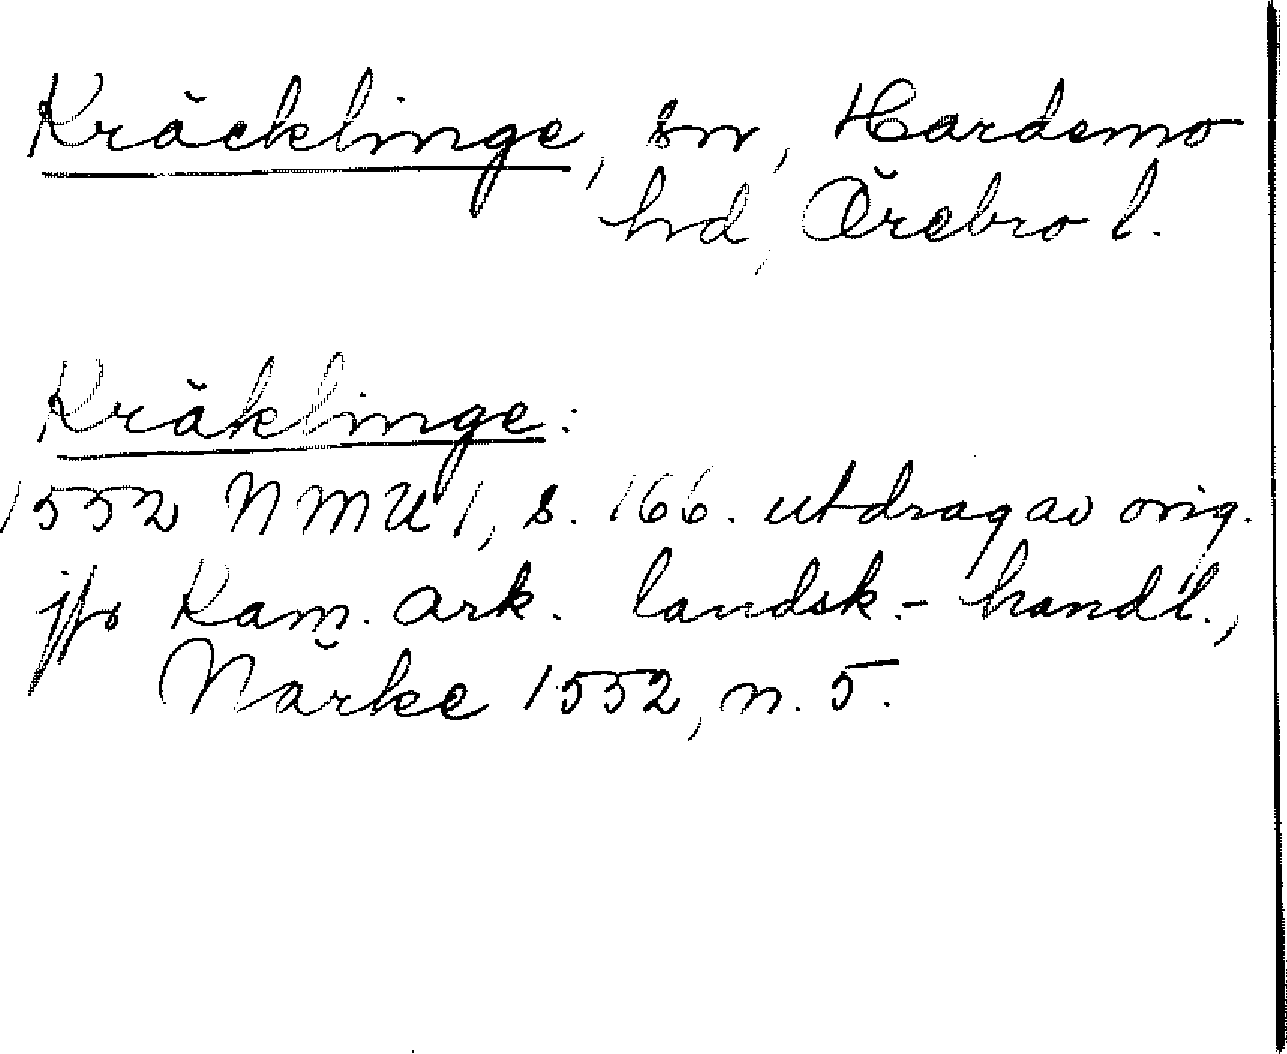 Kräcklinge, sn, Hardemo
hd, Örebro l.
Kräklinge:
1552 NMU 1, s. 166. utdrag av orig.
jfr Kam. ark. landsk.- handl.,
Närke 1552, n. 5.